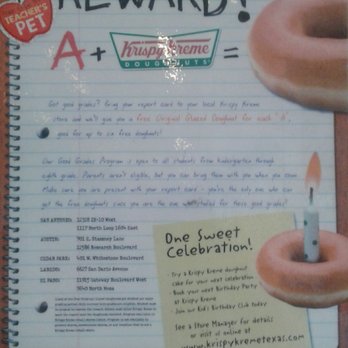 REWARD!
TEACHER'S
PET
A + Krispy Kreme =
DOUGHNUTS
Got good grades? Bring your report card to your local Krispy Kreme
store and we'll give you a free Original Glazed Doughnut for each "A",
good for up to six free doughnuts!
Our Good Grades Program is open to all students from kindergarten through
eighth grade. Parents aren't eligible, but you can bring them with you when you come.
Make sure you are present with your report card - you're the only one who can
get the free doughnuts since you are the one who studied for those good grades!
SAN ANTONIO: 12518 IH-10 West
1217 North Loop 1604 East
AUSTIN: 701 E. Stassney Lane
12596 Research Boulevard
CEDAR PARK: 401 W. Whitestone Boulevard
LAREDO: 6627 San Dario Avenue
EL PASO: 11915 Gateway Boulevard West
3040 North Mesa
One Sweet
Celebration!
- Try a Krispy Kreme doughnut
cake for your next celebration
- Book your next Birthday Party
at Krispy Kreme
- Join our Kid's Birthday Club today!
See a Store Manager for details
or visit us online at
www.krispykremetexas.com